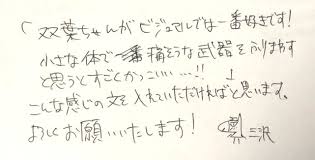 「双葉ちゃんがビジュアルでは一番好きです!
小さな体で一番痛そうな武器をふりまわす
と思うとすごくかっこいい…!!」
こんな感じの文を入れていただければと思います。
よろしくお願いいたします!
三沢